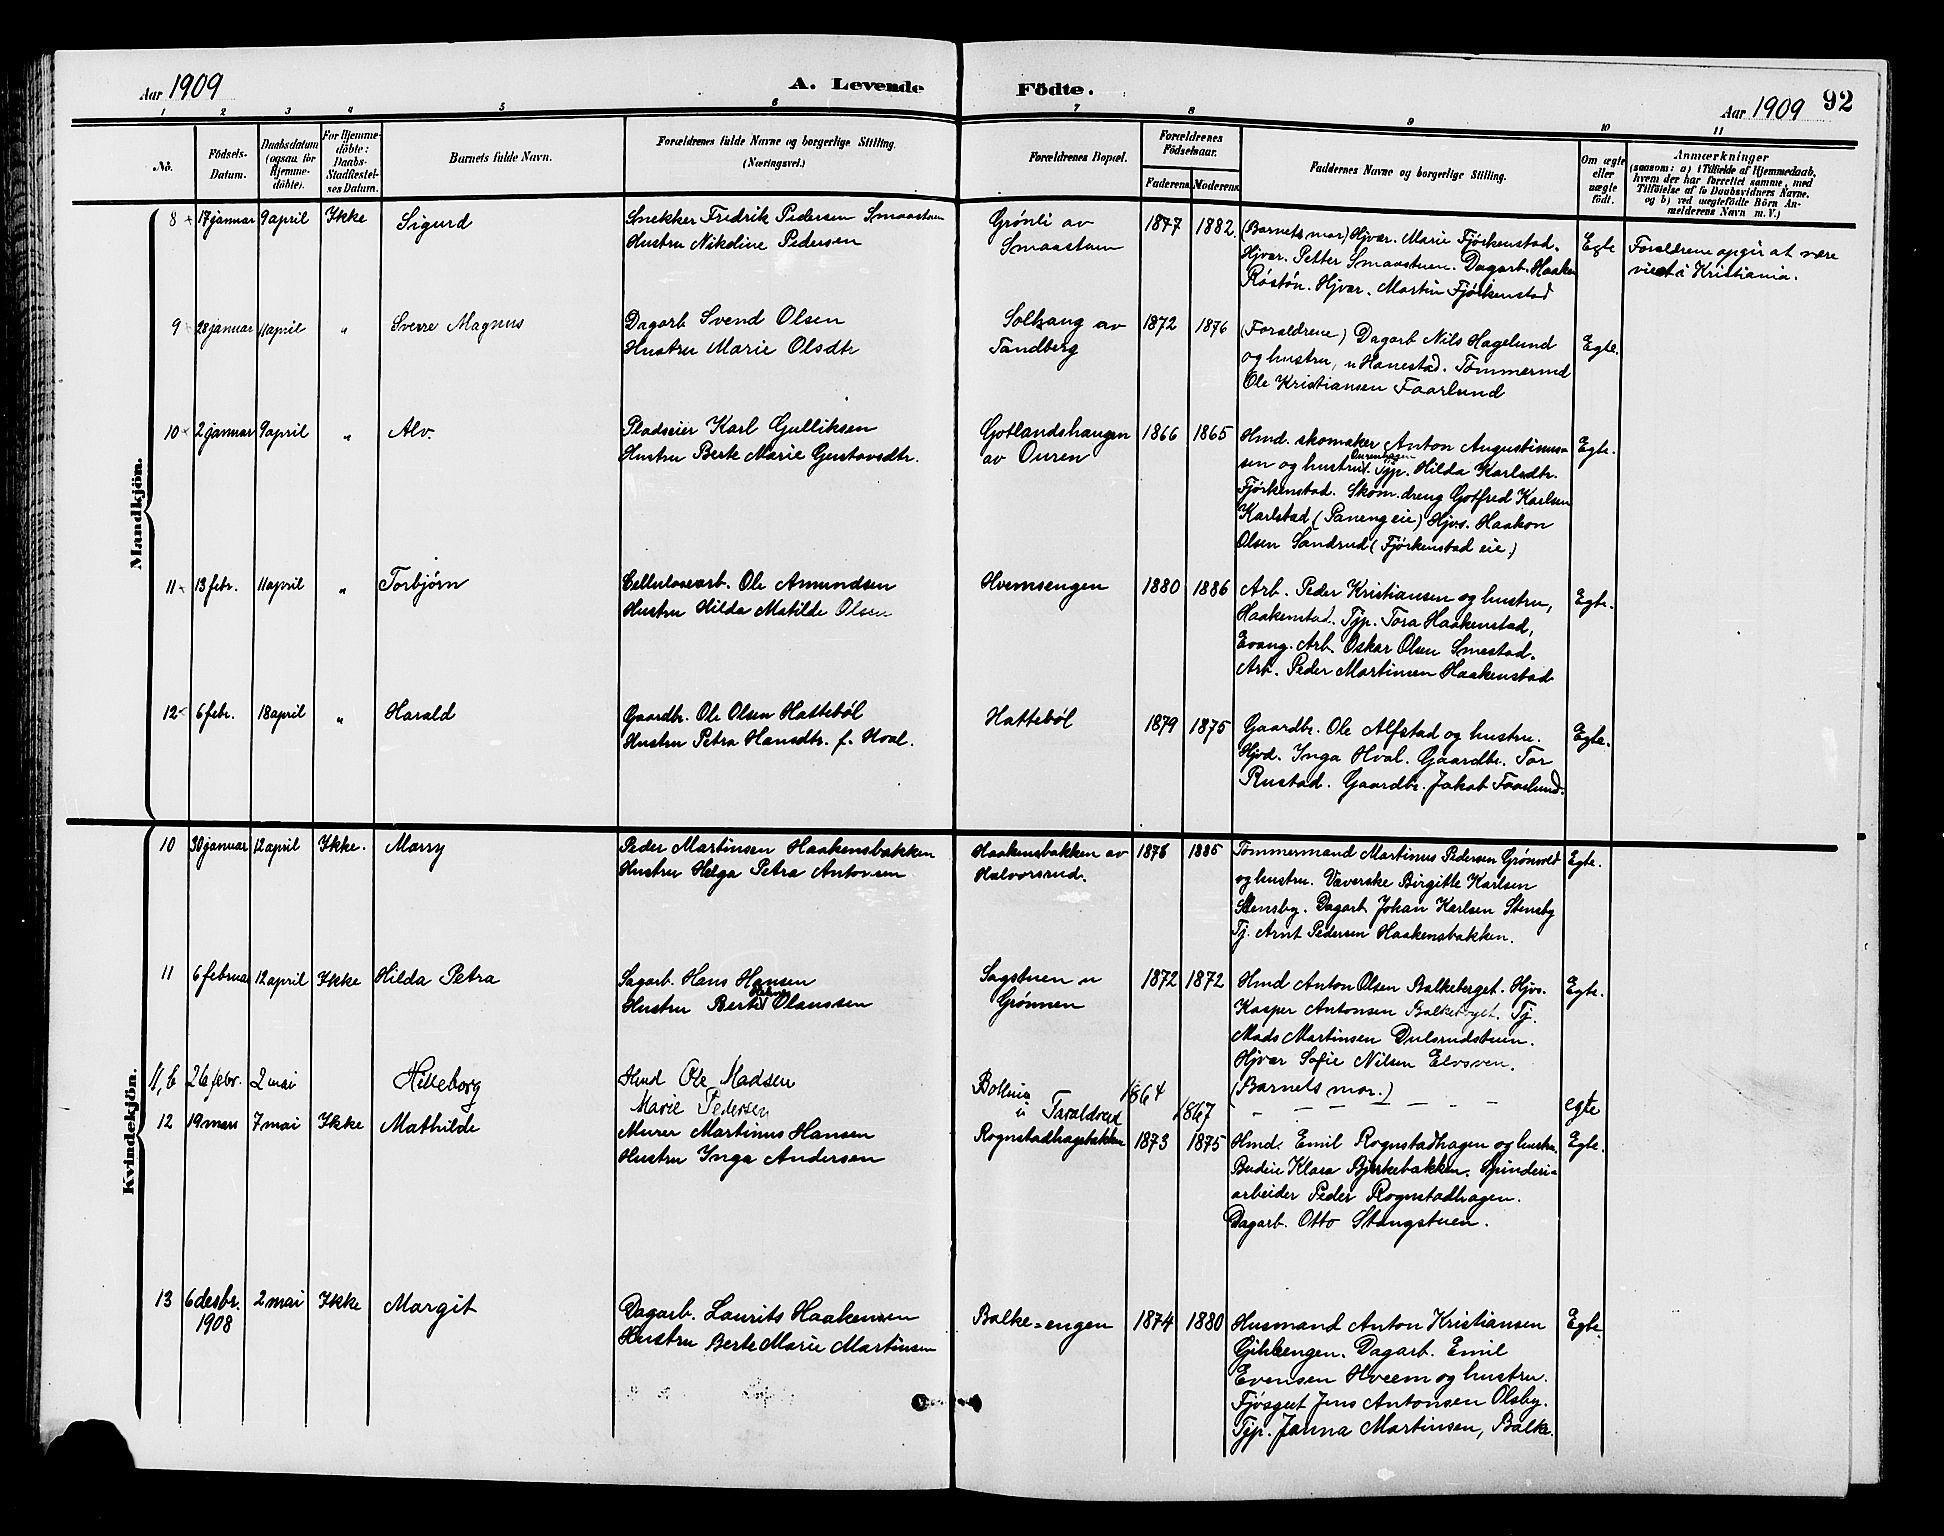 Aar 1909
A. Levende Födte.
Aar 1909
92
1 2 3 4 5 6 7 8 9 10 11
No.
Födsels-Datum.
Daabsdatum (ogsaa for Hjemmedöbte).
For Hjemmedöbte: Daabs-Stadfæstelses Datum.
Barnets fulde Navn.
Forældrenes fulde Navne og borgerlige Stilling. (Næringsvei.)
Forældrenes Bopæl.
Forældrenes Födselsaar.
Faderens. Moderens.
Faddernes Navne og borgerlige Stilling.
Om ægte eller uægte født.
Anmærkninger
(saasom: a) i Tilfælde af Hjemmedaab,
hvem der har forrettet samme, med
Tilföielse af to Daabsvidners Navne.
og b) ved uægtefödte Börn An-
melderens Navn m. V.)
Mandkjön.
8 17 januar 9 april Ikke Sigurd
Snekker Fredrik Pedersen Smaastuen
Hustru Nikoline Pedersen
Grönli av
Smaastuen
1877 1882.
(Barnets mor) Hjvær. Marie Fjörkenstad.
Hjvær. Petter Smaastuen. Dagarb. Haaken
Röstön. Hjvær. Martin Fjörkenstad
Egte
Foraldrene opgir at være
viet i Kristiania.
9 28 januar 11 april " Sverre Magnus
Dagarb Svend Olsen
Hustru Marie Olsdtr
Solhaug av
Tandberg
1872 1876
(Foraldrene) Dagarb Nils Hagelund
og hustru, u Hanestad. Tömmermd
Ole Kristiansen Faarlund
Egte.
10 2 januar 9 april " Alv.
Pladseier Karl Gulliksen
Hustru Berte Marie Gustavsdtr.
Gotlandshaugen
av Ouren
1866 1865
Hmd. skomaker Anton Augustinus-
sen og hustru Ourenhagen. Tjp. Hilda Karlsdtr.
Fjörkenstad. Skom.dreng Gotfred Karlsen
Karlstad (Paneng eie) Hjvs. Haakon
Olsen Sandrud (Fjörkenstad eie.)
Egte.
11 13 febr. 11 april " Torbjörn
Cellulosearb. Ole Amundsen
Hustru Hilda Matilde Olsen
Hvemsengen
1880 1886
Arb. Peder Kristiansen og hustru,
Haakenstad. Tjp. Tora Haakenstad,
Evang. Arb. Oskar Olsen Smestad.
Arb. Peder Martinsen Haakenstad
Egte.
12 6 febr. 18 april " Harald
Gaardbr. Ole Olsen Hatteböl
Hustru Petra Hansdtr. f. Hval.
Hatteböl
1879 1875
Gaardbr. Ole Alfstad og hustru.
Hjvd. Inga Hval. Gaardbr. Tor
Rustad. Gaardbr. Jakob Faarlund.
Egte.
Kvindekjön.
10 30 januar 12 april Ikke. Marry
Peder Martinsen Haakensbakken
Hustru Helga Petra Antonsen
Haakensbakken av
Halvorsrud.
1876 1885
Tömmermand Martinus Pedersen Grönvold
og hustru. Væverske Birgitte Karlsen
Stensby. Dagarb Johan Karlsen Stensby
Tj. Arnt Pedersen Haakensbakken.
Egte.
11 6 februar 12 april Ikke Hilda Petra
Sagarb. Hans Hansen
Hustru Berte Olaussen
Sagstuen u
Grönnen
1872 1872
Hmd Anton Olsen Balkeberget. Hjvs.
Kasper Antonsen Balkeberget. Tj.
Mads Martinsen Dulsrudstuen.
Hjvær Sofie Nilsen Elvsven.
(Barnets mor.)
Egte.
11,b 26 febr. 2 mai Hilleborg
Hmd Ole Madsen
Marie Pedersen
u Taraldrud
1864 1867
— — — — — —
egte
12 19 mars 7 mai Ikke Mathilde
Murer Martinus Hansen
Hustru Inga Andersen
Rognstadhagebakken
1873 1875
Hmd. Emil Rognstadhagen og hustru.
Budeie Klara Bjerkebakken. Spinderi-
arbeider Peder Rognstadhagen.
Dagarb. Otto Stangstuen.
Egte.
13 6 desbr. 1908 2 mai Ikke Margit
Dagarb. Laurits Haakensen
Hustru Berte Marie Martinsen
Balke=engen
1874 1880
Husmand Anton Kristiansen
Gihleengen. Dagarb. Emil
Evensen Hveem og hustru.
Fjösgut Jens Antonsen Olsby.
Tjp. Janna Martinsen, Balke.
Egte